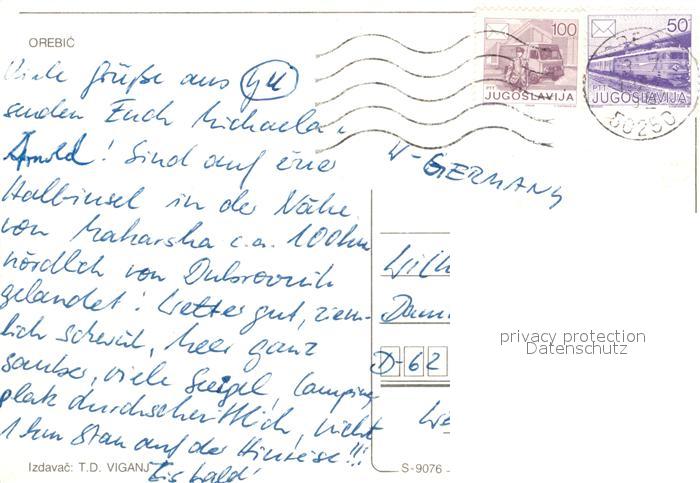 OREBIĆ
100
PTT JUGOSLAVIJA
50
PTT JUGOSLAVIJA
50250
Viele Grüße aus YU
senden Euch Michaela u.
Arnold! Sind auf einer
Halbinsel in der Nähe
von Makarska c.a. 100km
nördlich von Dubrovnik
gelandet! Wetter gut, ziem-
lich schwül, Meer ganz
sauber, viele Seeigel, Camping
platz durchschnittlich, nicht
1 km Stau auf der Hinreise!!!
Bis bald!
W-GERMANY
D-62
privacy protection
Datenschutz
Izdavač: T.D. VIGANJ
S-9076